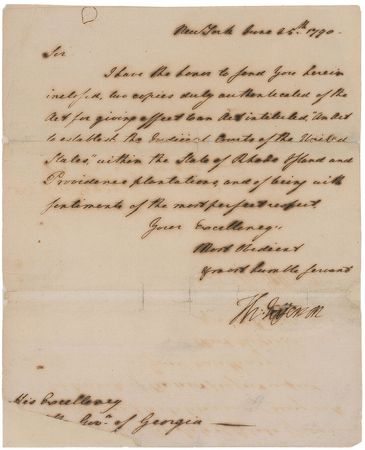 New York June 25.th 1790.
Sir
I have the honor to send you herein
inclosed, two copies duly authenticated of the
Act for giving effect to an Act intituled, "An Act
to establish the Judicial Courts of the United
States," within the State of Rhode Island and
Providence plantations, and of being with
sentiments of the most perfect respect
Your Excellency's
Most Obedient
& most humble servant
Th: Jefferson
His Excellency
The Gov.r of Georgia